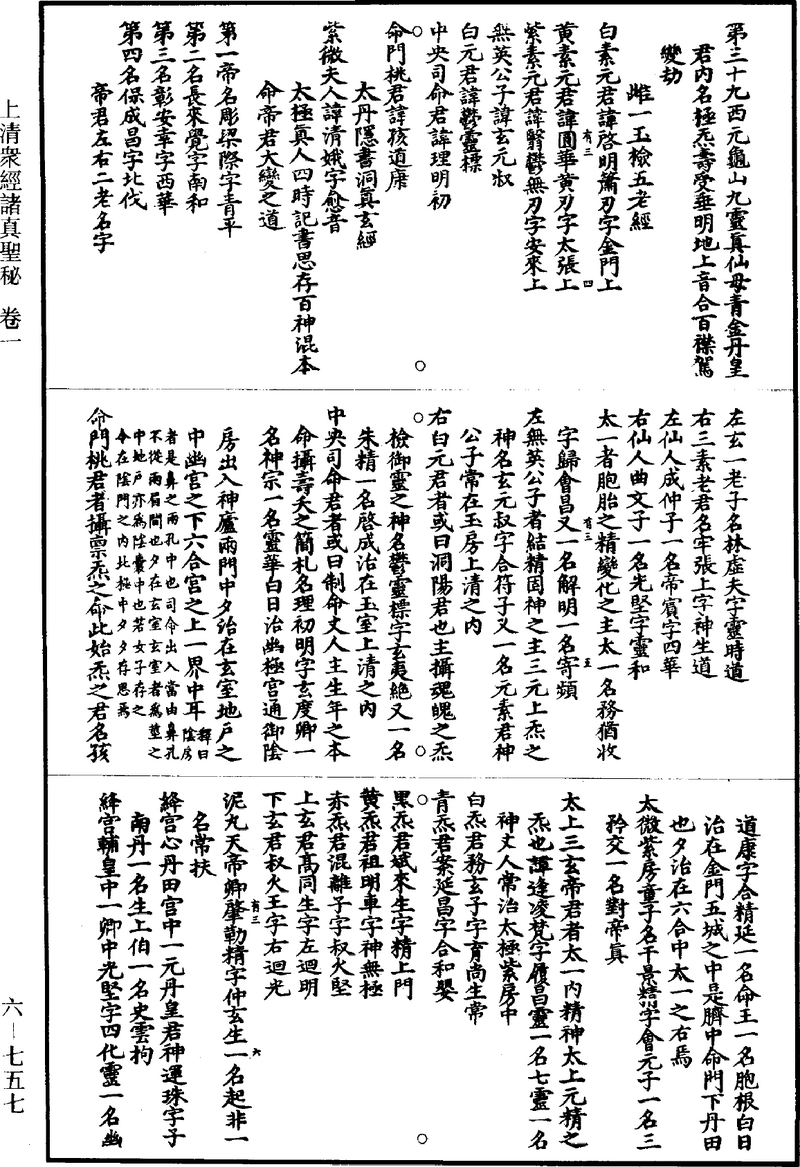 第三十九西元龜山九靈真仙母青金丹皇
君內名極炁壽受垂明地上音合百襟駕
變劫
雌一玉檢五老經
白素元君諱啓明蕭刃字金門上
黃素元君諱圓華黃刃字太張上
有三
四
紫素元君諱翳鬱無刃字安來上
無英公子諱玄元叔
白元君諱鬱靈標
中央司命君諱理明初
命門桃君諱孩道康
太丹隱書洞真玄經
紫微夫人諱清娥字愈音
太極真人四時記書思存百神混本
命帝君大變之道
第一帝名彫梁際字青平
第二名長來覺字南和
第三名彰安幸字西華
第四名保成昌字北伐
帝君左右二老名字
左玄一老子名林虛夫字靈時道
右三素老君名牢張上字神生道
左仙人成仲子一名帝賓字四華
右仙人曲文子一名光堅字靈和
太一者胞胎之精變化之主太一名務猶收
有三
王
字歸會昌又一名解明一名寄頻
左無英公子者結精固神之主三元上炁之
神名玄元叔字合符子又一名元素君神
公子常在玉房上清之內
右白元君者或曰洞陽君也主攝魂魄之炁
檢御靈之神名鬱靈標字玄夷絕又一名
朱精一名啓成治在玉室上清之內
中央司命君者或曰制命丈人主生年之本
命攝壽夭之簡札名理初明字玄度卿一
名神宗一名靈華白日治幽極宮通御陰
房出入神廬兩門中夕治在玄室地戶之
中幽宮之下六合宮之上一界中耳
釋曰陰房
者是鼻之兩孔中也司命出入當由鼻孔
不從兩眉間也夕在玄室玄室者為莖之
中地戶亦為陰囊中也若女子存之
令在陰門之內北極中夕夕存思焉
命門桃君者攝稟炁之命此始炁之君名孩
道康字合精延一名命王一名胞根白日
治在金門五城之中是臍中命門下丹田
也夕治在六合中太一之右焉
太微紫房童子名千景精字會元子一名三
矜交一名對帝真
太上三玄帝君者太一內精神太上元精之
炁也諱逢凌梵字履昌靈一名七靈一名
神丈人常治太極紫房中
白炁君務玄子字育尚生常
青炁君案延昌字合和嬰
黑炁君斌來生字精上門
黃炁君祖明車字神無極
赤炁君混離子字叔火堅
上玄君高同生字左迴明
下玄君叔火王字右迴光
有三
泥丸天帝卿肇勒精字仲玄生一名起非一
六
名常扶
絳宮心丹田宮中一元丹皇君神運珠字子
南丹一名生上伯一名史雲拘
絳宮輔皇中一卿中光堅字四化靈一名幽
上清眾經諸真聖秘　卷一
六—七五七